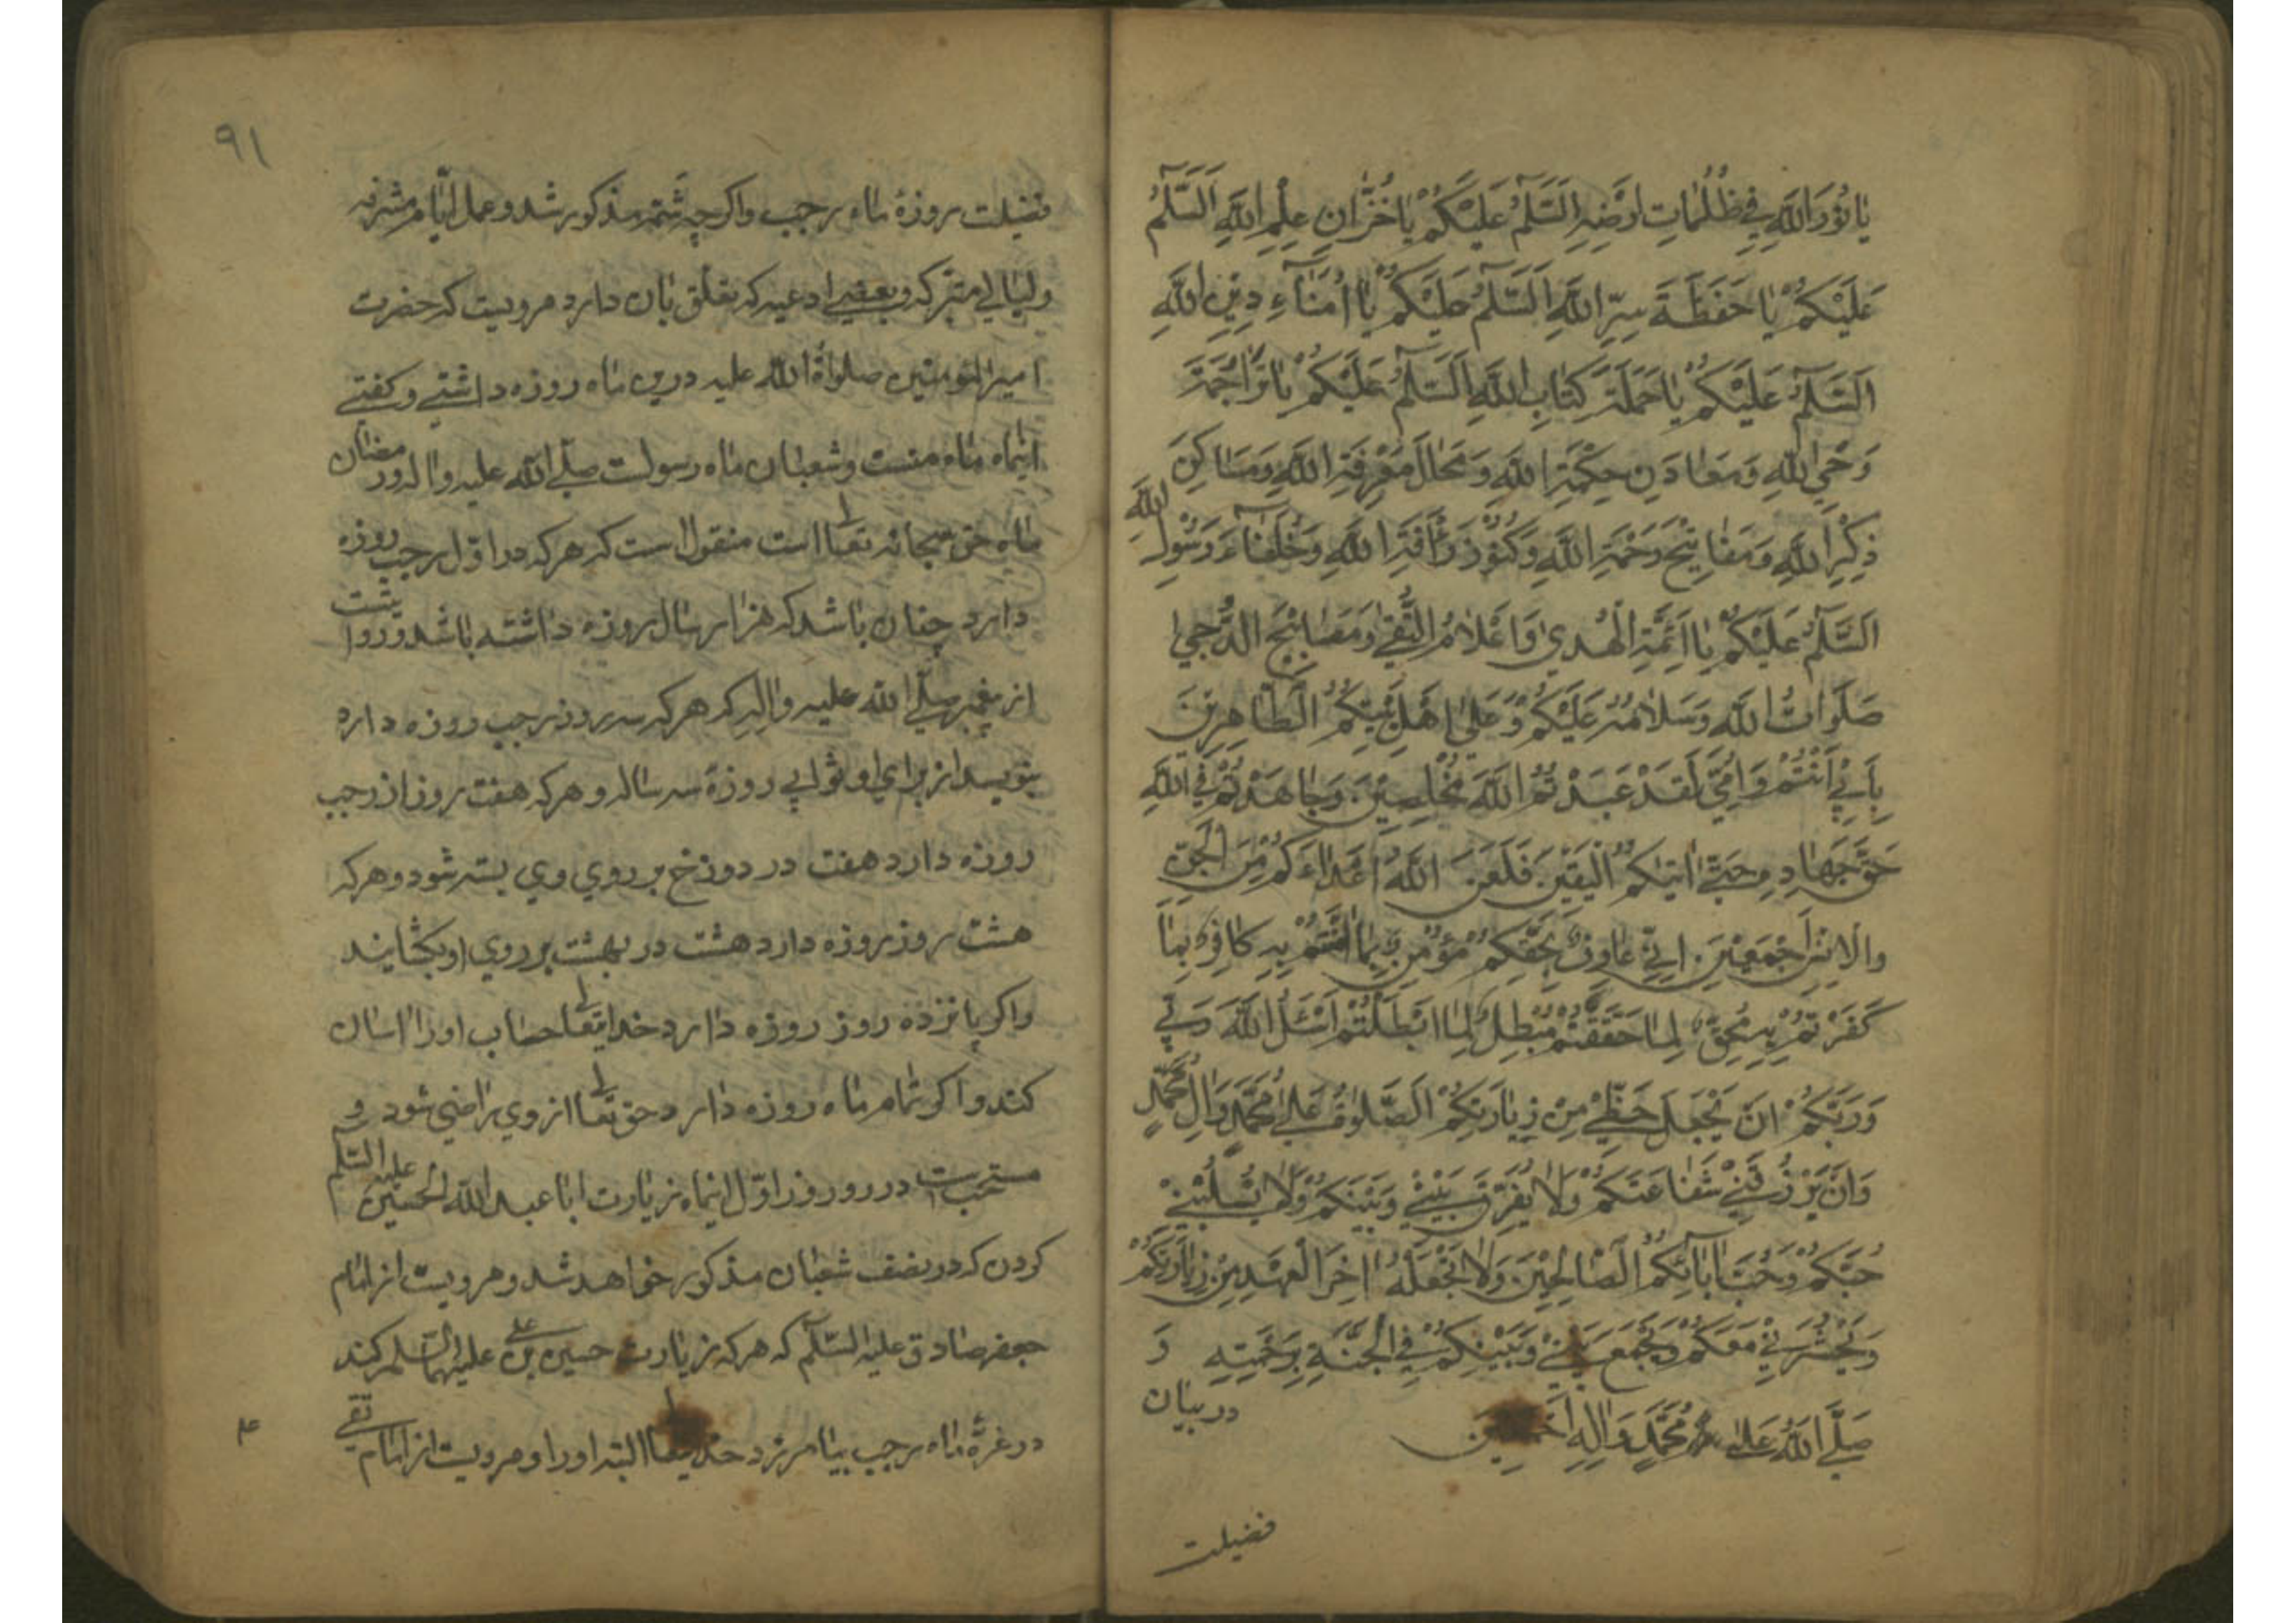 يا نُورَ اللَّهِ فِي ظُلُمَاتِ اَرْضِهِ اَلسَّلَمُ عَلَيْكُمْ يَا خُزَّانِ عِلْمِ اللَّهِ اَلسَّلَمُ
عَلَيْكُمْ يَا حَفَظَةَ سِرِّ اللَّهِ اَلسَّلَمُ عَلَيْكُمْ يَا اُمَنَاءِ دِيْنِ اللَّهِ
اَلسَّلَمُ عَلَيْكُمْ يَا حَمَلَةَ كِتَابِ اللَّهِ اَلسَّلَمُ عَلَيْكُمْ يَا تَرَاجِمَةَ
وَحْيِ اللَّهِ وَمَعَادَنِ حِكْمَةِ اللَّهِ وَمَحَالَ مَعْرِفَةِ اللَّهِ وَمَسَاكِنَ
ذِكْرِ اللَّهِ وَمَفَاتِيْحَ رَحْمَةِ اللَّهِ وَكُنُوْزَ رَأْفَةِ اللَّهِ وَخُلَفَاءَ رَسُوْلِ اللَّهِ
اَلسَّلَمُ عَلَيْكُمْ يَا اَئِمَّةِ الْهُدىٰ وَاَعْلَامُ التُّقىٰ وَمَصَابِيْحَ الدُّجىٰ
صَلَوَاتُ اللَّهِ وَسَلَامُهُ عَلَيْكُمْ وَعَلىٰ اَهْلِ بَيْتِكُمُ الطَّاهِرِيْنَ
بِاَبِيْ اَنْتُمْ وَاُمِّيْ لَقَدْ عَبَدْتُمُ اللَّهَ مُخْلِصِيْنَ وَجَاهَدْتُمْ فِي اللَّهِ
حَقَّ جَهَادِهِ حَتّىٰ اَتيٰكُمُ الْيَقِيْنَ فَلَعَنَ اللَّهُ اَعْدَاءَكُمْ مِنَ الْجِنِّ
وَالْاِنْسِ اَجْمَعِيْنَ اِنِّيْ عَاوِفٌ بِحَقِّكُمْ مُؤْمِنٌ بِمَا اٰمَنْتُمْ بِهِ كَافِرٌ بِمَا
كَفَرْتُمْ بِهِ مُحِقٌّ لِمَا حَقَّقْتُمْ مُبْطِلٌ لِمَا اَبْطَلْتُمْ اَسْئَلُ اللَّهَ رَبِّيْ
وَرَبَّكُمْ اَنْ يَجْعَلَ حَظِّيْ مِنْ زِيَارَتِكُمْ الصَّلوٰةُ عَلىٰ مُحَمَّدٍ وَاٰلِ مُحَمَّدٍ
وَاَنْ يَرْزُقَنِيْ شَفَاعَتَكُمْ وَلَا يُفَرِّقَ بَيْنِيْ وَبَيْنَكُمْ وَلَا يَسْلُبَنِيْ
حُبَّكُمْ وَحُبَّ اٰبَائِكُمُ الصَّالِحِيْنَ وَلَا تَجْعَلْهُ اٰخِرَ الْعَهْدِ مِنْ زِيَارَتِكُمْ
وَيَحْشُرَنِيْ مَعَكُمْ وَيَجْمَعَ بَيْنِيْ وَبَيْنَكُمْ فِي الْجَنَّةِ بِرَحْمَتِهِ وَ
صَلَّى اللَّهُ عَلىٰ مُحَمَّدٍ وَاٰلِهِ اَجْمَعِيْنَ در بيان
فضيلت
٩١
فضيلت روزهٔ ماه رجب واكرچه شمّه مذكور شد وعمل ايّام مشرفه
وليالى متبركه وبعضى ادعيه كه تعلّق بان دارد مرويست كه حضرت
اميرالمومنين صلواة الله عليه درين ماه روزه داشتى وكفتى
اينماه ماه منست وشعبان ماه رسولست صلّى الله عليه واله ورمضان
ماه حق سبحانه تعالى است منقول است كه هركه در اوّل رجب روزه
دارد چنان باشد كه هزار سال روزه داشته باشد ودر روايتست
از پيغمبر صلّى الله عليه واله كه هركه سه روز رجب روزه دارد
بنويسد از براى او ثوابى روزهٔ سه ساله وهركه هفت روز از رجب
روزه دارد هفت در دوزخ بر روى وى بسته شود وهركه
هشت روز روزه دارد هشت در بهشت بر روى او بكشايند
واكر پانزده روز روزه دارد خدايتعالى حساب اورا اسان
كند واكر تمام ماه روزه دارد حق تعالى از وى راضى شود و
مستحبست در روز اوّل اينماه زيارت ابا عبد الله الحسين عليه السّلم
كردن كه در نصف شعبان مذكور خواهد شد ومرويست از امام
جعفر صادق عليه السّلم كه هركه زيارت حسين بن على عليهما السّلم كند
در غرّهٔ ماه رجب بيامرزد خدايتعالى البته اورا ومرويست از امام تقى